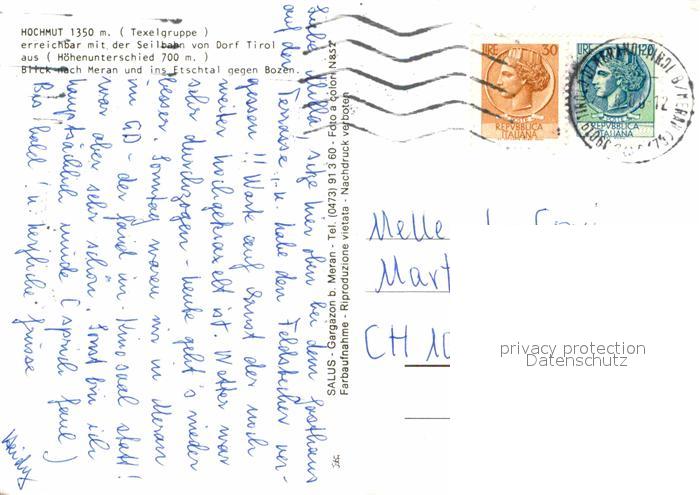 HOCHMUT 1350 m. ( Texelgruppe )
erreichbar mit der Seilbahn von Dorf Tirol
aus ( Höhenunterschied 700 m. )
Blick nach Meran und ins Etschtal gegen Bozen.
Liebe sitze hier oben bei dem Gasthaus
auf der Terrasse, u. habe den Feldstecher ver-
gessen!! Warte auf Ernst der noch
weiter hochgekraxelt ist. Wetter war
sehr durchzogen - heute geht's wieder
besser. Sonntag waren wir in Meran
im GD - der fand im Kinosaal statt!
war aber sehr schön. Sonst bin ich
hauptsächlich müde (sprich faul)
Bis bald! u. herzliche Grüsse
SALUS - Gargazon b. Meran - Tel. (0473) 91 3 60 - Foto a colori N852
Farbaufnahme - Riproduzione vietata - Nachdruck verboten
LIRE 30
POSTE
REPVBBLICA
ITALIANA
LIRE 120
POSTE
REPVBBLICA
ITALIANA
Melle
Mart
CH 10
privacy protection
Datenschutz